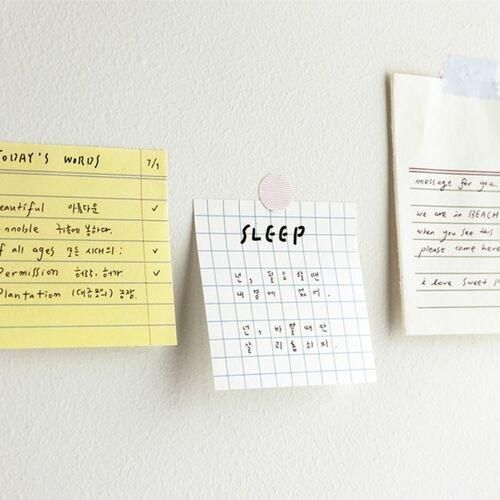 TODAY'S WORDS 7/1
eautiful 아름다운 ✓
nnoble 귀족에 봉하다.
f all ages 모든 시대의 : ✓
Permission 허락, 허가. ✓
Plantation (대규모의) 농장.
SLEEP
넌, 필요할땐
내 곁에 없어.
넌, 바쁠때만
날 괴롭히지.
message for you.
we are in BEACH
when you see this
please come here
i love sweet p